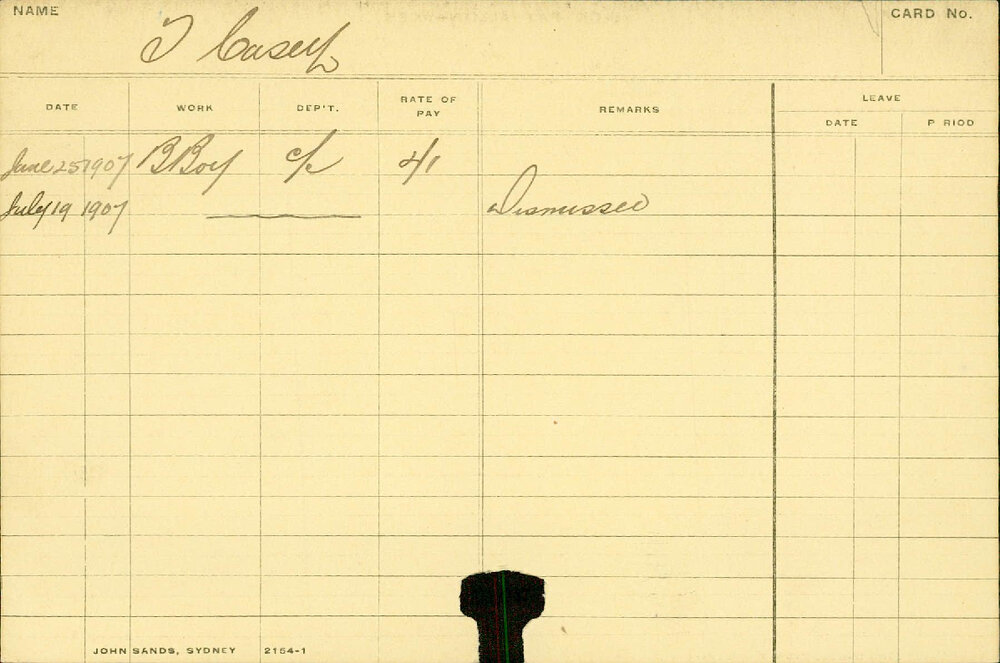 NAME T Casey CARD No.
DATE WORK DEP'T. RATE OF PAY REMARKS LEAVE
DATE P RIOD
June 25 1907 B Boy c/c 4/1
July 19 1907 Dismissed
JOHN SANDS, SYDNEY 2154-1